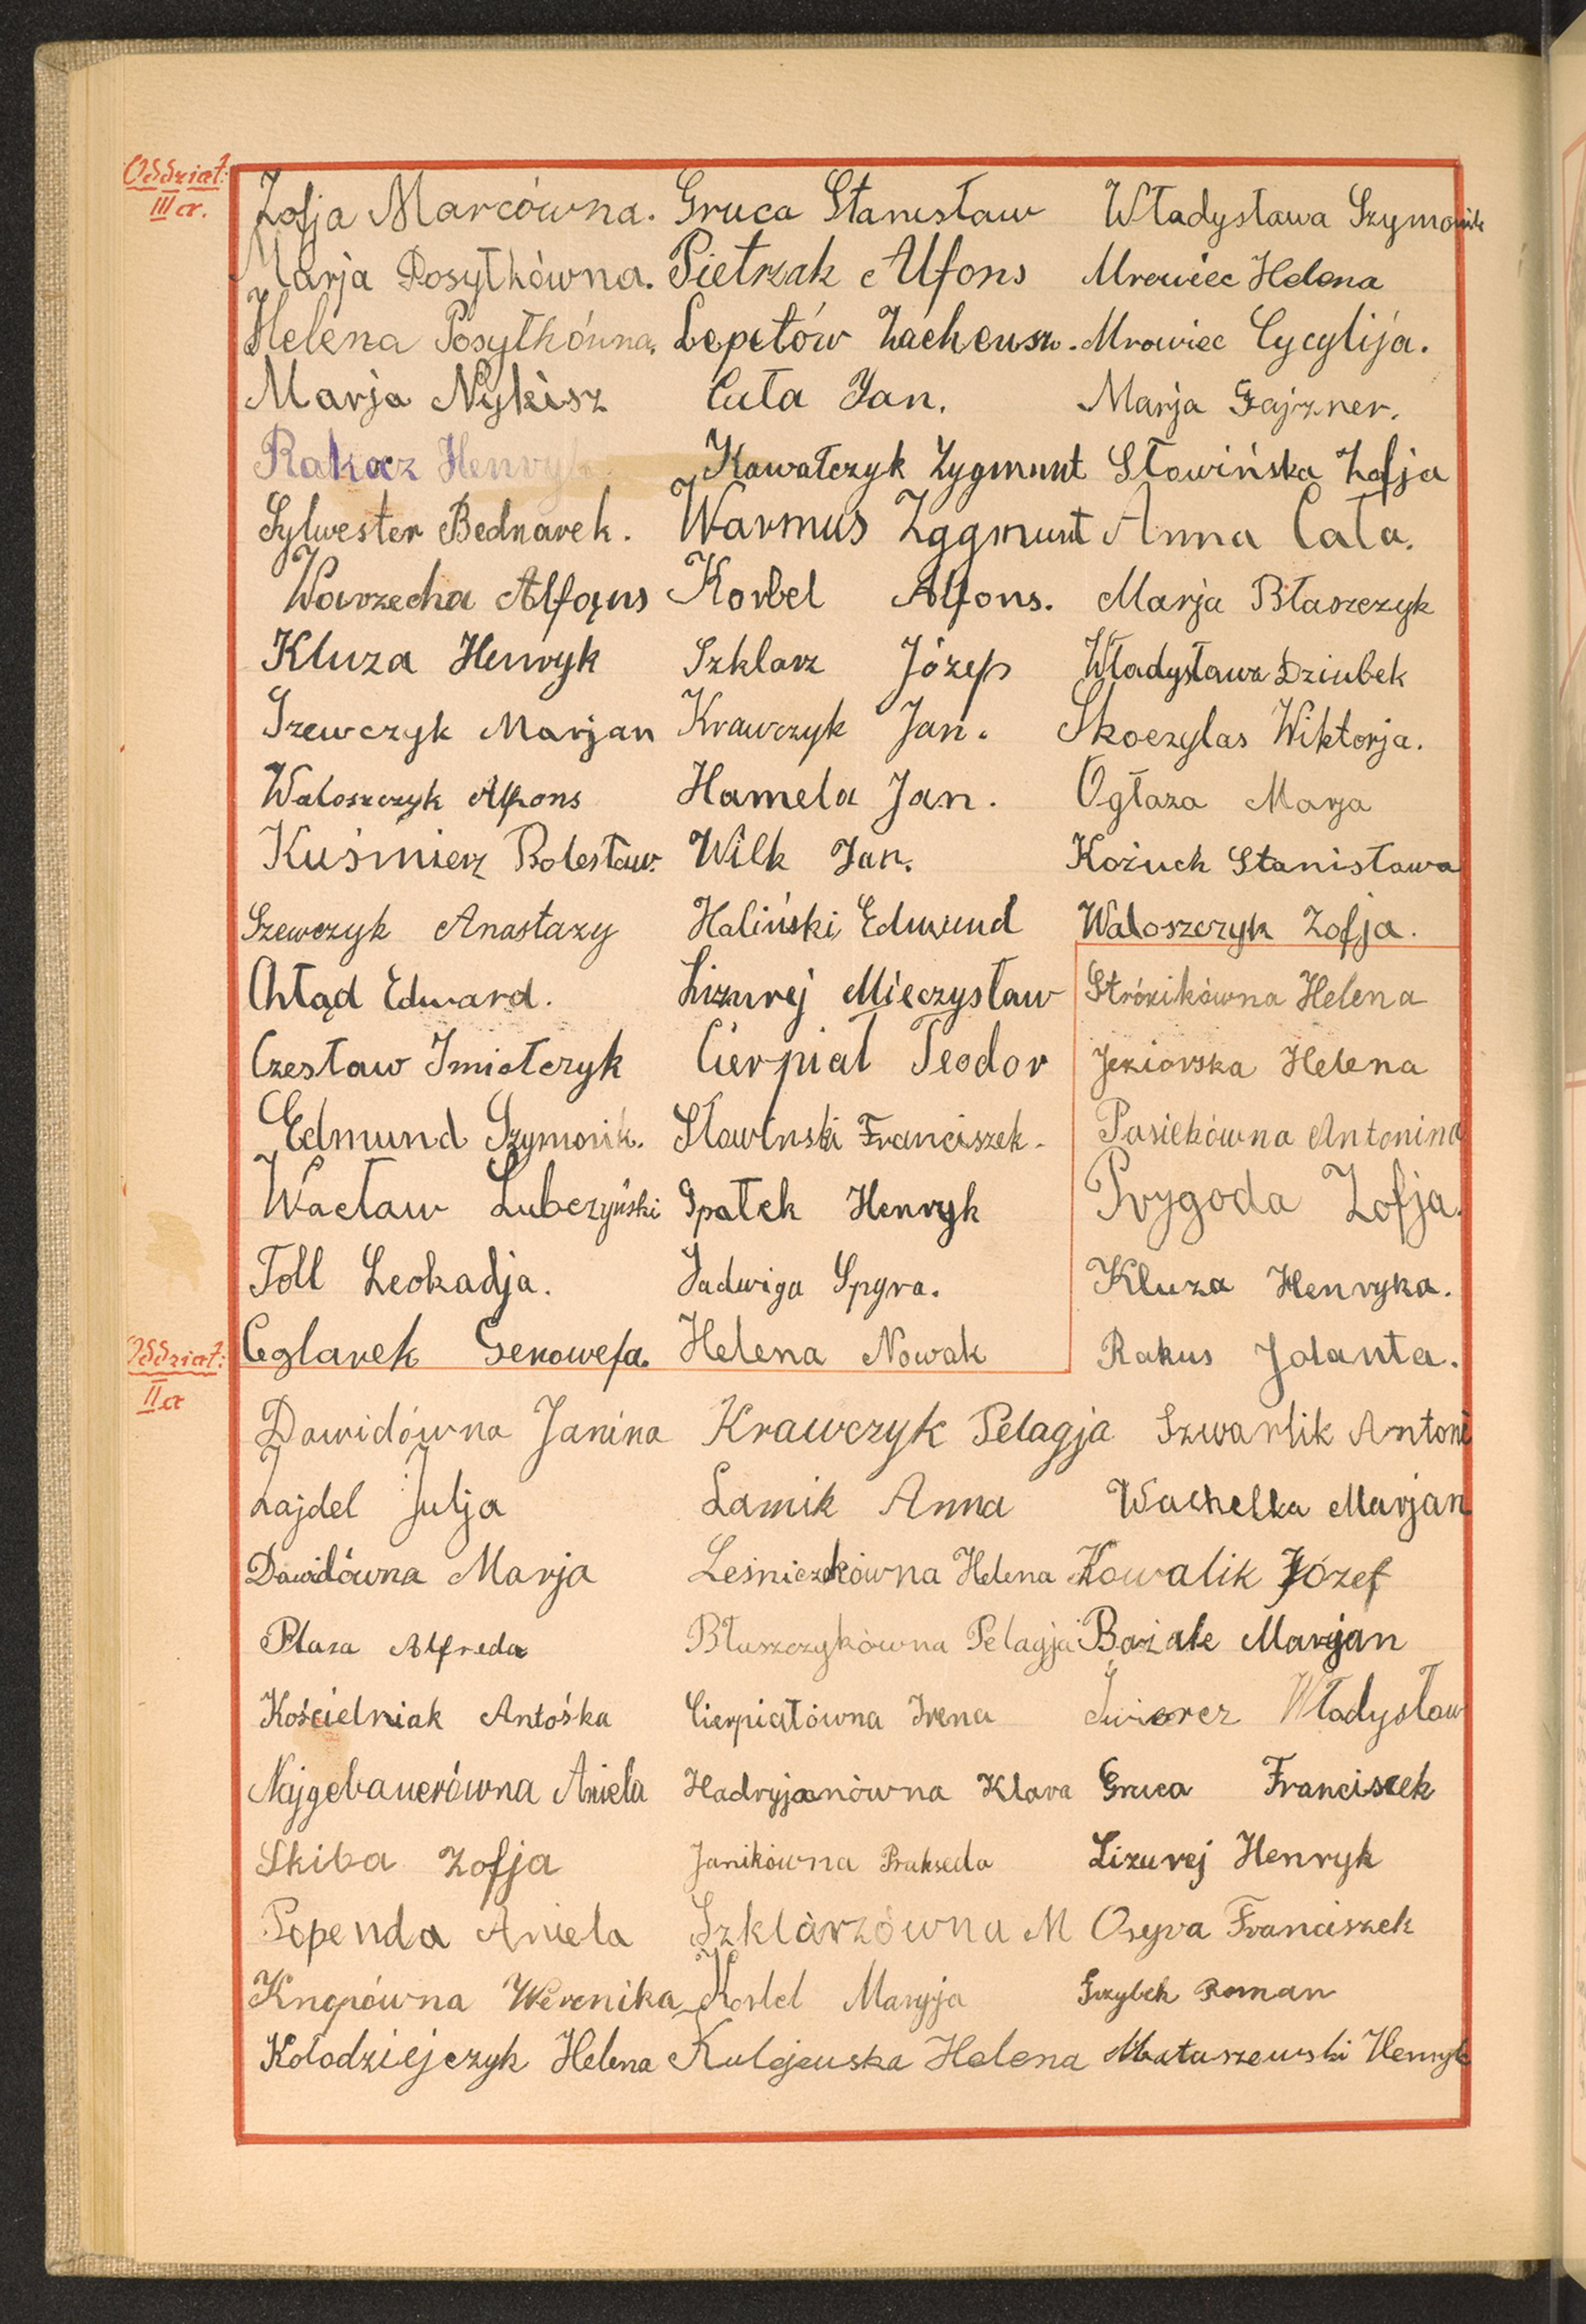 Oddział:
III cr.
Zofja Marcówna. Gruca Stanisław Władysława Szymonik
Marja Posyłkówna. Pietrzak Alfons Mrowiec Helena
Helena Posyłkówna, Lepełów Zacheusz. Mrowiec Cycylija.
Marja Nykisz Cuła Jan. Marja Gajzner.
Rakocz Henryk Kowalczyk Zygmunt Słowińska Zofja
Sylwester Bednarek. Warmus Zggmunt Anna Cała.
Warzecha Alfąns Korbel Alfons. Marja Błaszczyk
Kluza Henryk Szklarz Józef Władysława Dziubek
Szewczyk Marjan Krawczyk Jan. Skoczylas Wiktorja.
Waloszczyk Alfons Hamela Jan. Ogłaza Marja
Kuśmierz Bolesław. Wilk Jan. Kożuch Stanisława
Szewczyk Anastazy Haliński Edmund Waloszczyk Zofja.
Chłąd Edward. Lizurej Mieczysław Stróżikówna Helena
Czesław Imiołczyk Cierpiał Teodor Jeziorska Helena
Edmund Szymonik. Sławinski Franciszek- Pasiekówna Antonina
Wacław Lubczyński Spałek Henryk Przygoda Zofja.
Toll Leokadja. Jadwiga Spyra. Kluza Henryka.
Ceglarek Genowefa. Helena Nowak Rakus Jolanta.
Oddział:
II a
Dawidówna Janina Krawczyk Pelagja Szwarlik Antoni
Zajdel Julja Lamik Anna Wachelka Marjan
Dawidówna Marja Leśniczkówna Helena Kowalik Józef
Plaza Alfreda Błaszczykówna Pelagja Bożałe Marjan
Kościelniak Antośka Cierpiałówna Irena Świercz Władysław
Najgebauerówna Aniela Hadryjanówna Klara Gruca Franciszek
Skiba Zofja Janikówna Prakseda Lizurej Henryk
Popenda Aniela Szklarzówna M Osyra Franciszek
Knopówna Weronika Korbel Maryja Grzybek Roman
Kołodziejczyk Helena Kulejewska Helena Mataszewski Henryk